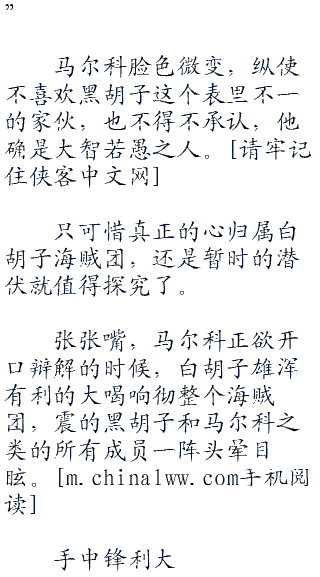 ”
马尔科脸色微变，纵使
不喜欢黑胡子这个表里不一
的家伙，也不得不承认，他
确是大智若愚之人。[请牢记
住侠客中文网]
只可惜真正的心归属白
胡子海贼团，还是暂时的潜
伏就值得探究了。
张张嘴，马尔科正欲开
口辩解的时候，白胡子雄浑
有利的大喝响彻整个海贼
团，震的黑胡子和马尔科之
类的所有成员一阵头晕目
眩。[m.china1ww.com手机阅
读]
手中锋利大